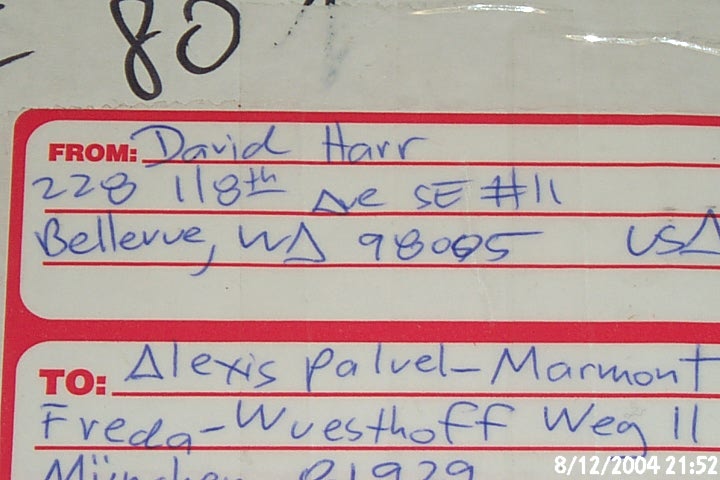 80
FROM: David Harr
228 118th Ave SE #11
Bellevue, WA 98005 USA
TO: Alexis Paluel-Marmont
Freda-Wuesthoff Weg 11
München 81929
8/12/2004 21:52